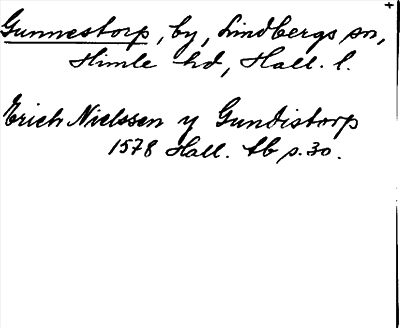 Gunnestorp, by, Lindbergs sn,
Himle hd, Hall. l.
Erich Nielssen y Gundistorp
1578 Hall. tb s. 30.